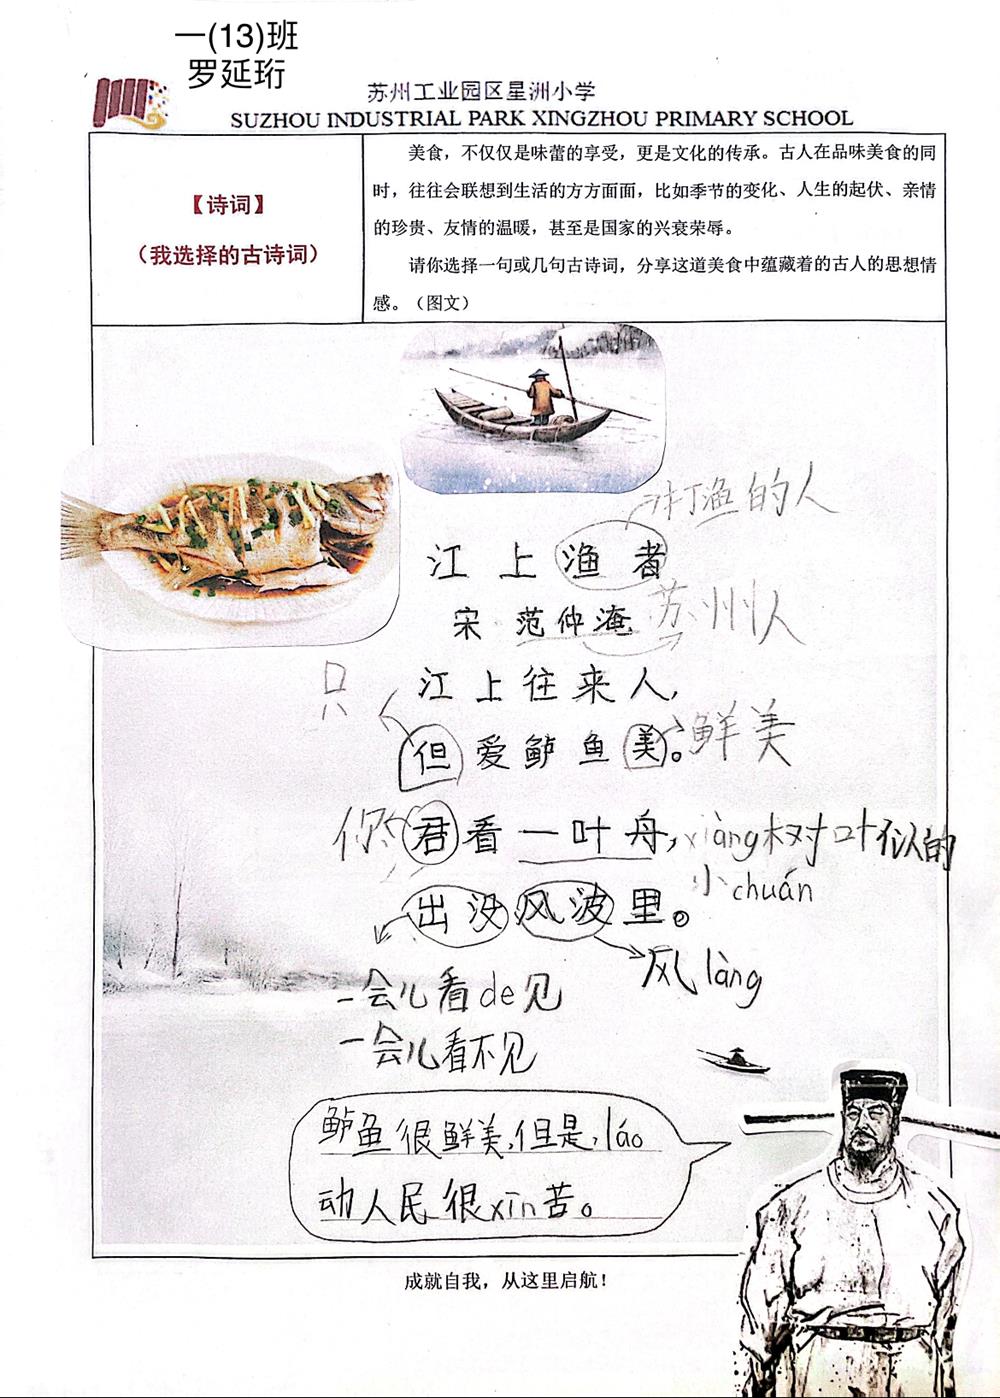 一(13)班
罗延珩
苏州工业园区星洲小学
SUZHOU INDUSTRIAL PARK XINGZHOU PRIMARY SCHOOL
【诗词】
（我选择的古诗词）
美食，不仅仅是味蕾的享受，更是文化的传承。古人在品味美食的同
时，往往会联想到生活的方方面面，比如季节的变化、人生的起伏、亲情
的珍贵、友情的温暖，甚至是国家的兴衰荣辱。
请你选择一句或几句古诗词，分享这道美食中蕴藏着的古人的思想情
感。（图文）
打渔的人
江上渔者
宋 范仲淹
苏州人
江上往来人，
只
但爱鲈鱼美。
鲜美
你
君看一叶舟，
xiàng树叶似的
小chuán
出没风波里。
风làng
一会儿看de见
一会儿看不见
鲈鱼很鲜美，但是，láo
动人民很xīn苦。
成就自我，从这里启航！